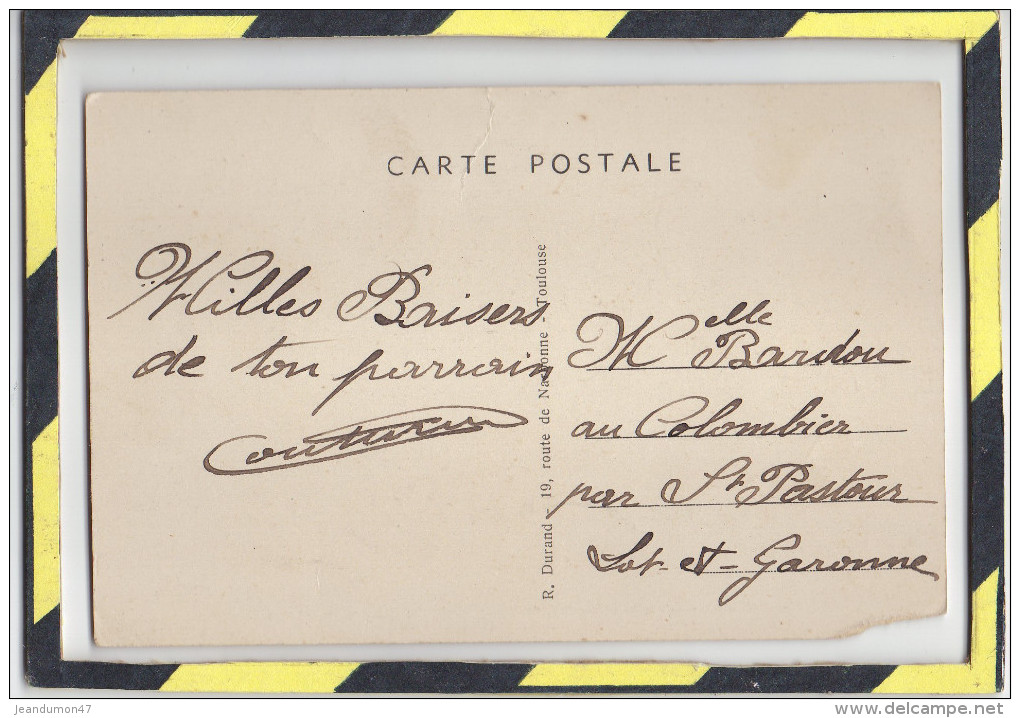 CARTE POSTALE
Milles Baisers
de ton parrain
R. Durand - 19, route de Narbonne - Toulouse
Melle Bardou
au Colombier
par St Pastour
Lot-et-Garonne
jeandumon47
delcampe.net